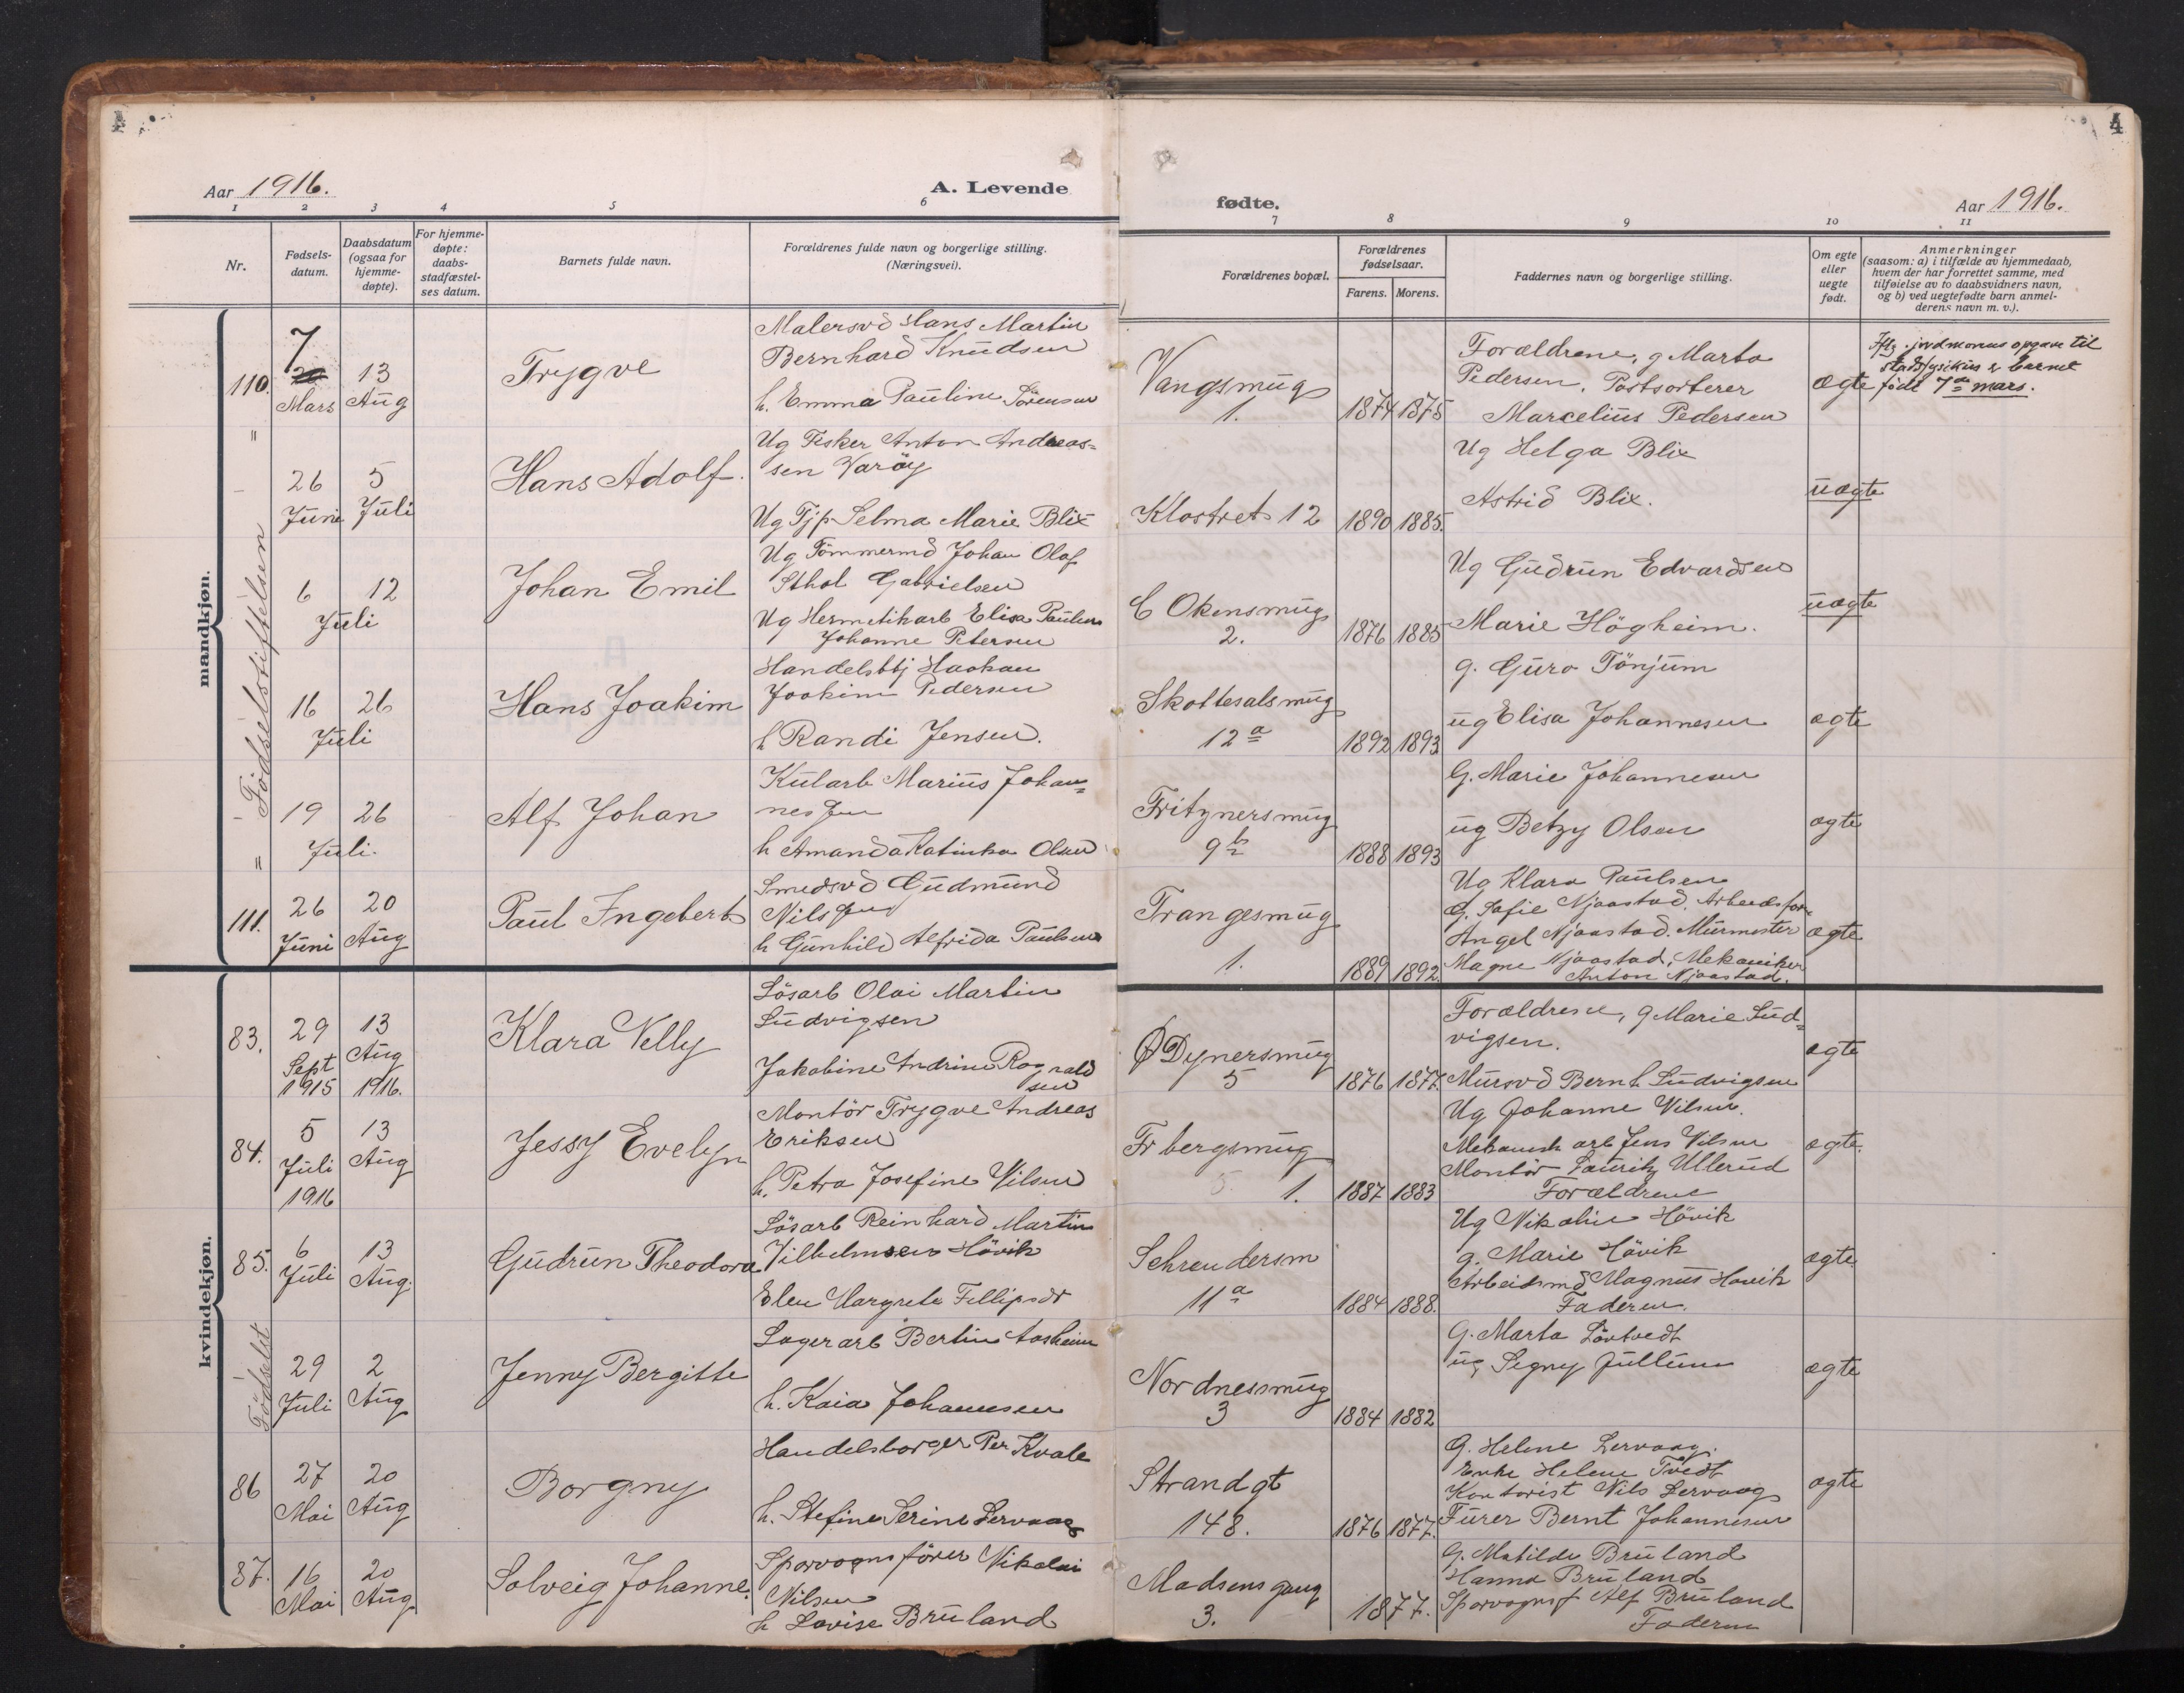 4
Aar 1916.
A. Levende
fødte.
Aar 1916.
1 2 3 4 5 6 7 8 9 10 11
Nr.
Fødsels-
datum.
Daabsdatum
(ogsaa for
hjemme-
døpte).
For hjemme-
døpte:
daabs-
stadfæstel-
ses datum.
Barnets fulde navn.
Forældrenes fulde navn og borgerlige stilling.
(Næringsvei).
Forældrenes bopæl.
Forældrenes
fødselsaar.
Farens. Morens.
Faddernes navn og borgerlige stilling.
Om egte
eller
uegte
født.
Anmerkninger
(saasom: a) i tilfælde av hjemmedaab,
hvem der har forrettet samme, med
tilføielse av to daabsvidners navn,
og b) ved uegtefødte barn anmel-
derens navn m. v.).
mandkjøn.
Fødselsstiftelsen
110.
7
Mars
13
Aug
Trygve
Malersvd Hans Martin
Bernhard Knudsen
h. Emma Pauline Sörensen
Vangsmug
1.
1874 1875
Forældrene, g Marta
Pedersen, Postsorterer
Marcelius Pedersen
ægte
Iflg. indkomne opgave til
stadsfysikus er barnet
født 7de mars.
"
26
Juni
5
Juli
Hans Adolf.
Ug Fisker Anton Andreas=
sen Varöy
Ug Tjp Selma Marie Blix
Klostret 12
1890 1885.
Ug Helga Blix
Astrid Blix.
uægte
6 12
Juli
Johan Emil
Ug Tömmermd Johan Olaf
Sthol Gabrielsen
Ug Hermetikarb Elisa Pauline
Johanne Petersen
C Okensmug
2.
1876 1885
Ug Gudrun Edvardsen
Marie Högheim.
uægte
16 26
Juli
Hans Joakim
Handelsbtj Haakan
Joakim Pedersen
h Randi Jensen.
Skottesalsmug
12 a
1892 1893
g. Guro Tönjum
ug Elisa Johannesen
ægte
19 26
Juli.
Alf Johan
Kularb Marius Johan=
nessen
h Amanda Katinka Olsen
Fritznersmug
9 b
1888 1893
G. Marie Johannesen
ug Betzy Olsen
ægte
"
111.
26
Juni
20
Aug
Paul Ingebert
Smedsvd Gudmund
Nilssen
h Gunhild Alfrida Paulsen
Trangesmug
1.
1889 1892.
Ug Klara Paulsen
G. Sofie Njaastad. Arbeidsfor.
Angel Njaastad. Murmester
Magne Njaastad, Mekaniker
Anton Njaastad.
ægte
kvindekjøn.
83.
29
Sept
1915
13
Aug
1916.
Klara Nelly
Lösarb Olai Martin
Ludvigsen
Jakobine Andrine Rognald
sen
Ø Dynersmug
5
1876 1877.
Forældrene, g Marie Lud=
vigsen.
Mursvd Bernh. Ludvigsen
ægte
84.
5
Juli
1916
13
Aug
Jessy Evelyn
Montör Trygve Andreas
Eriksen
h. Petra Josefine Nilsen
Fr bergsmug
1.
1887 1883
Ug Johanne Nilsen.
Mekanisk arb Jens Nilsen
Montör Lauritz Ullerud
Forældrene
ægte.
85.
6
Juli
13
Aug.
Gudrun Theodora
Lösarb Reinhard Martin
Vilhelmsen Hövik
Elen Margrete Fillipsdt
Schrøudersm
11 a
1884 1888.
Ug Nikoline Hövik
g. Marie Hövik
Arbeidsmd Magnus Hövik
Faderen.
ægte
Fødselst
29
Juli
2
Aug
Jenny Bergitte
Lagerarb Bertin Aasheim
h. Kaia Johannesen
Nordnessmug
3
1884 1882
G. Marta Lövtvedt
ug Segny Jullum
ægte
86
27
Mai
20
Aug
Borgny
Handelsborger Per Kvale
h. Stefine Serine Lervaag
Strandgt
148.
1876 1877.
G. Helene Lervaag.
Enke Helene Tvedt
Kontorist Nils Lervaag
Furer Bernt Johannesen
ægte
87.
16
Mai
20
Aug
Solveig Johanne.
Sporvognsförer Nikolai
Nilsen
h Lovise Bruland
Madsens gang
3.
1877.
G. Matilde Bruland
Hanna Bruland
Sporvognsf Alf Bruland
Faderen